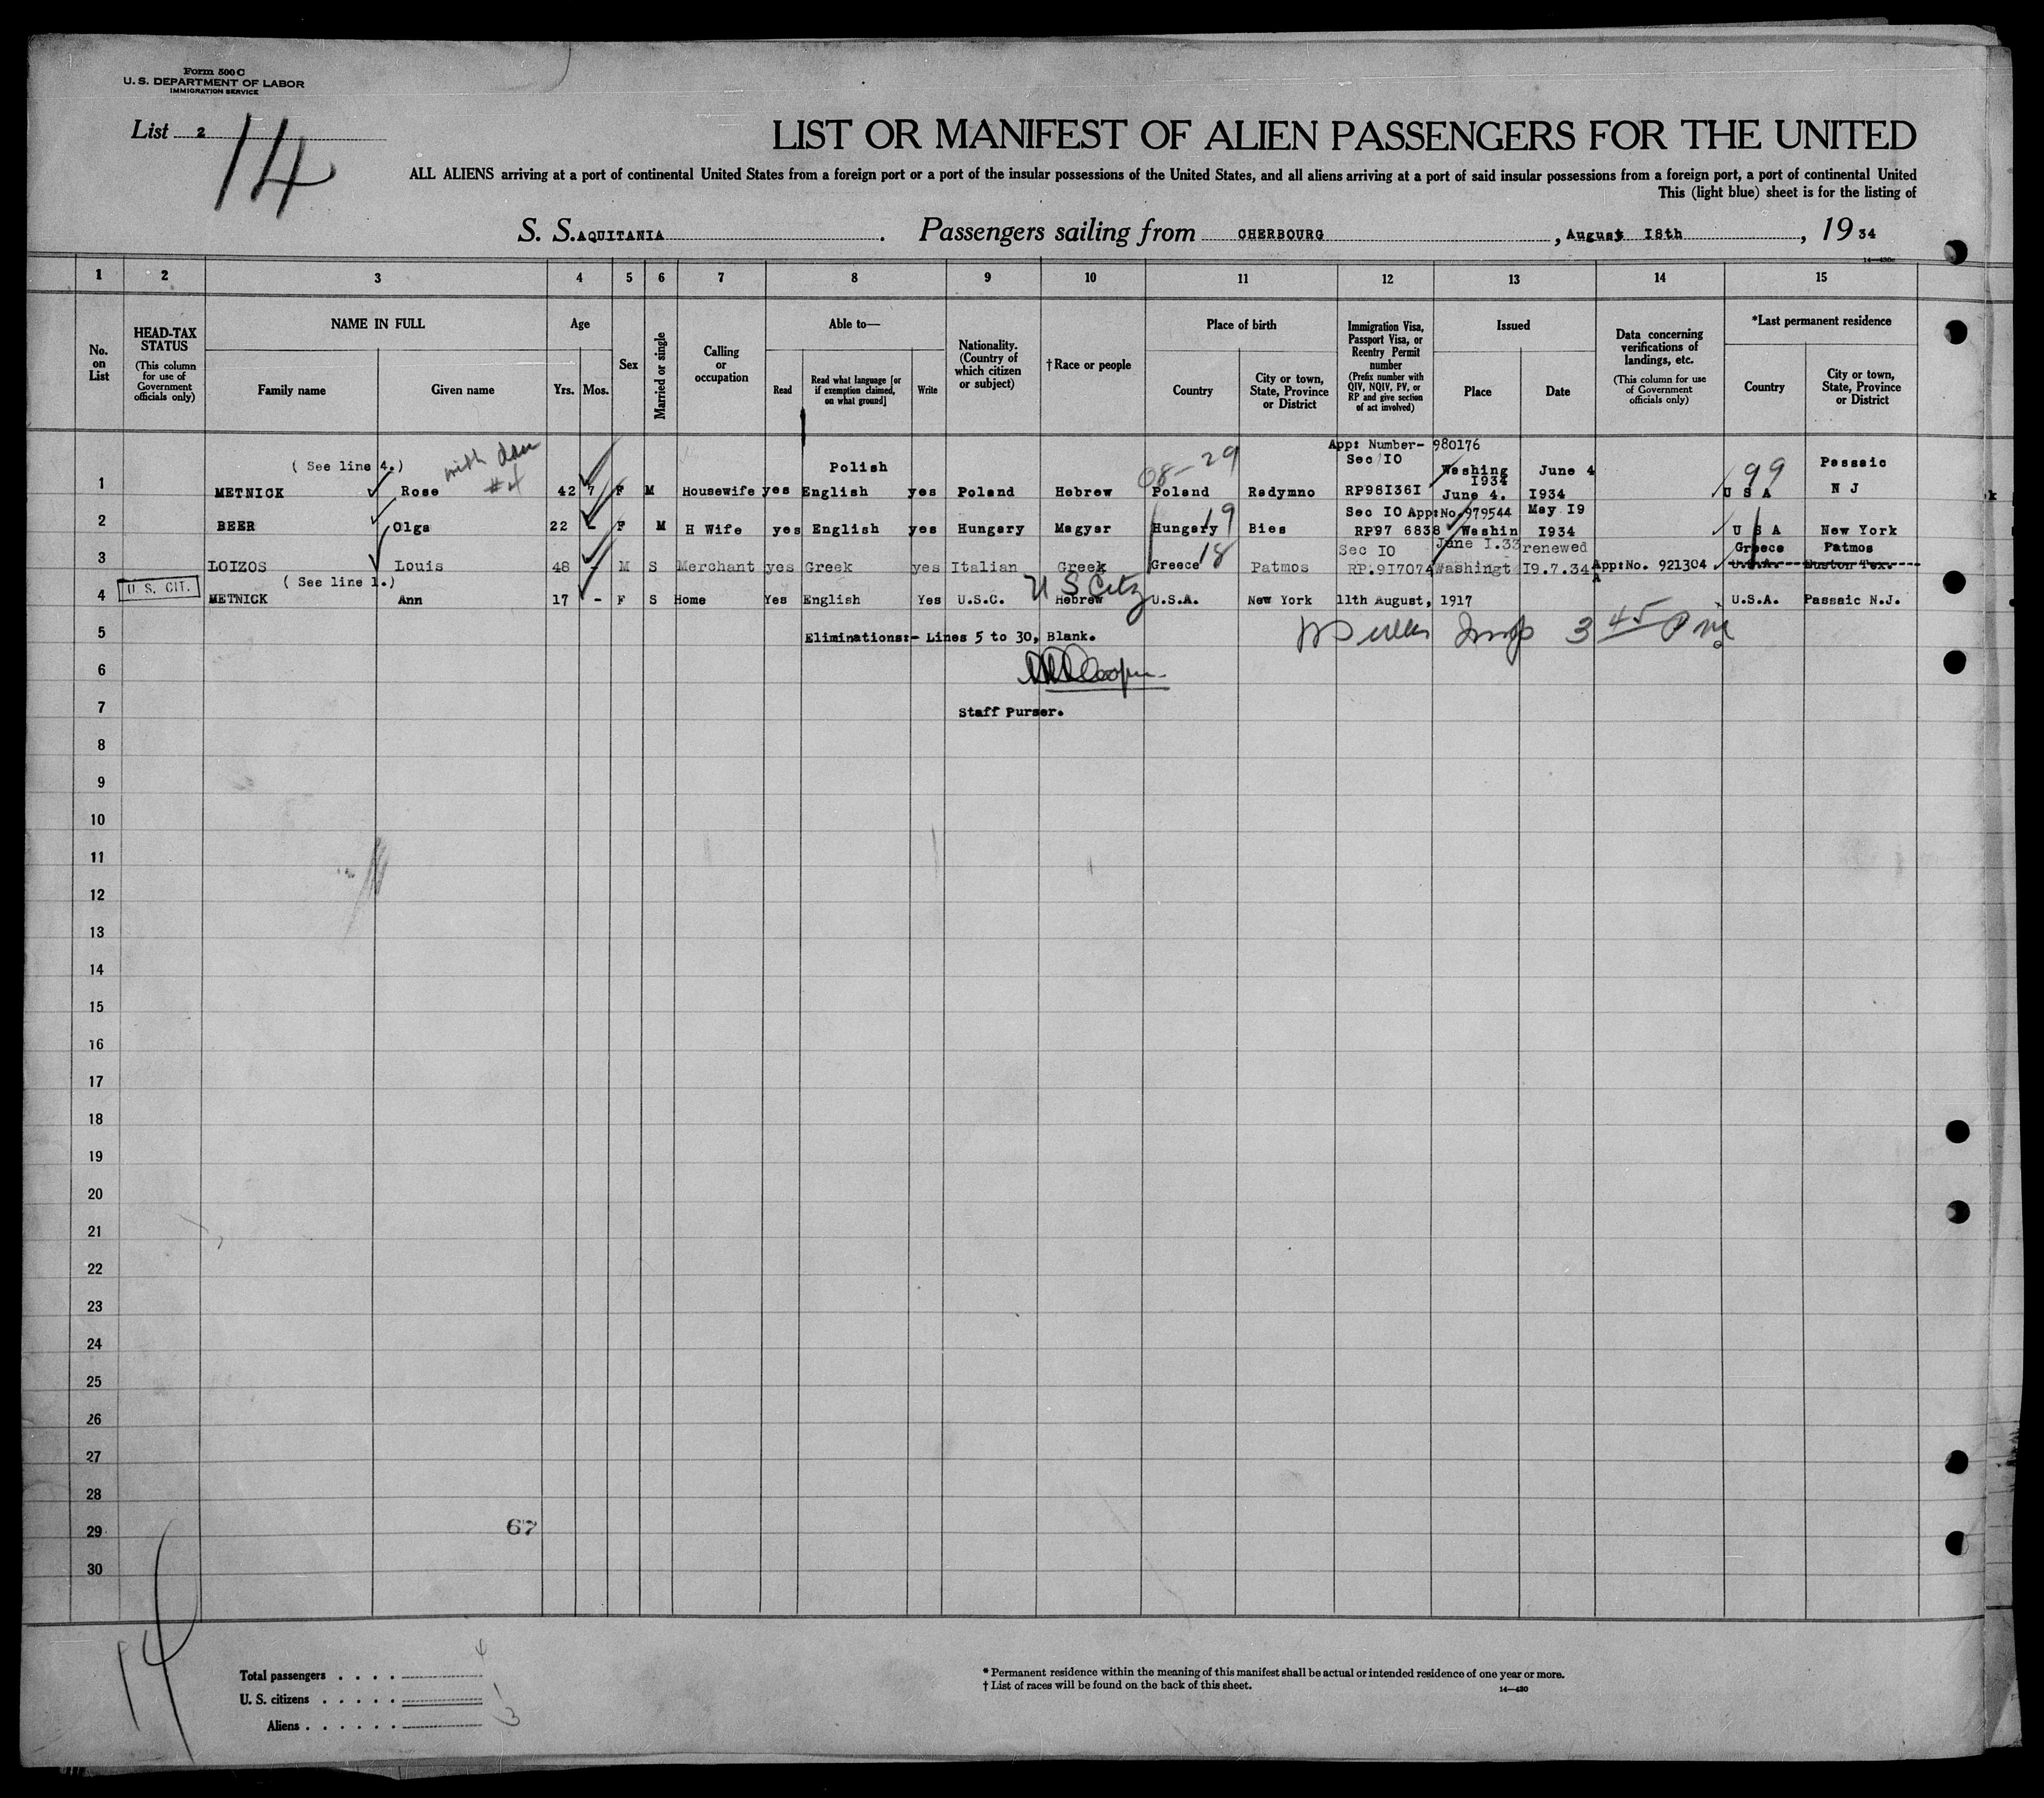 Form 500 C
U. S. DEPARTMENT OF LABOR
IMMIGRATION SERVICE
List 2
14
LIST OR MANIFEST OF ALIEN PASSENGERS FOR THE UNITED
ALL ALIENS arriving at a port of continental United States from a foreign port or a port of the insular possessions of the United States, and all aliens arriving at a port of said insular possessions from a foreign port, a port of continental United
This (light blue) sheet is for the listing of
S. S. AQUITANIA. Passengers sailing from CHERBOURG, August I8th, 19 34
14—430c
1 2 3 4 5 6 7 8 9 10 11 12 13 14 15
No. on List
HEAD-TAX STATUS
(This column for use of Government officials only)
NAME IN FULL
Family name Given name
Age
Yrs. Mos.
Sex
Married or single
Calling or occupation
Able to—
Read Read what language [or if exemption claimed, on what ground] Write
Nationality. (Country of which citizen or subject)
†Race or people
Place of birth
Country City or town, State, Province or District
Immigration Visa, Passport Visa, or Reentry Permit number
(Prefix number with QIV, NQIV, PV, or RP and give section of act involved)
Issued
Place Date
Data concerning verifications of landings, etc.
(This column for use of Government officials only)
*Last permanent residence
Country City or town, State, Province or District
App: Number- 980176
(See line 4.) with dau #4 Polish 08-29 Sec IO Washing 1934 June 4 99 Passaic
1 METNICK Rose 42 7 F M Housewife yes English yes Poland Hebrew Poland Radymno RP98I36I June 4. I934 U S A N J
Sec IO App:No 979544 May I9
2 BEER Olga 22 - F M H Wife yes English yes Hungary Magyar Hungary 19 Bies RP97 6838 Washin I934 U S A New York
Sec IO June I.33 renewed Greece Patmos
3 LOIZOS Louis 48 - M S Merchant yes Greek yes Italian Greek Greece 18 Patmos RP.9I7074 Washingt I9.7.34 App:No. 921304 U.S.A. Huston Tex.
(See line 1.)
4 U. S. CIT. METNICK Ann 17 - F S Home Yes English Yes U.S.C. U S Citz Hebrew U.S.A. New York 11th August, 1917 U.S.A. Passaic N.J.
5 Eliminations:- Lines 5 to 30, Blank. Insp 3 45 P M
6
7 Staff Purser.
8
9
10
11
12
13
14
15
16
17
18
19
20
21
22
23
24
25
26
27
28
29 67
30
14
Total passengers . . . . 4
U. S. citizens . . . . . 1
Aliens . . . . . . 3
* Permanent residence within the meaning of this manifest shall be actual or intended residence of one year or more.
† List of races will be found on the back of this sheet.
14—430